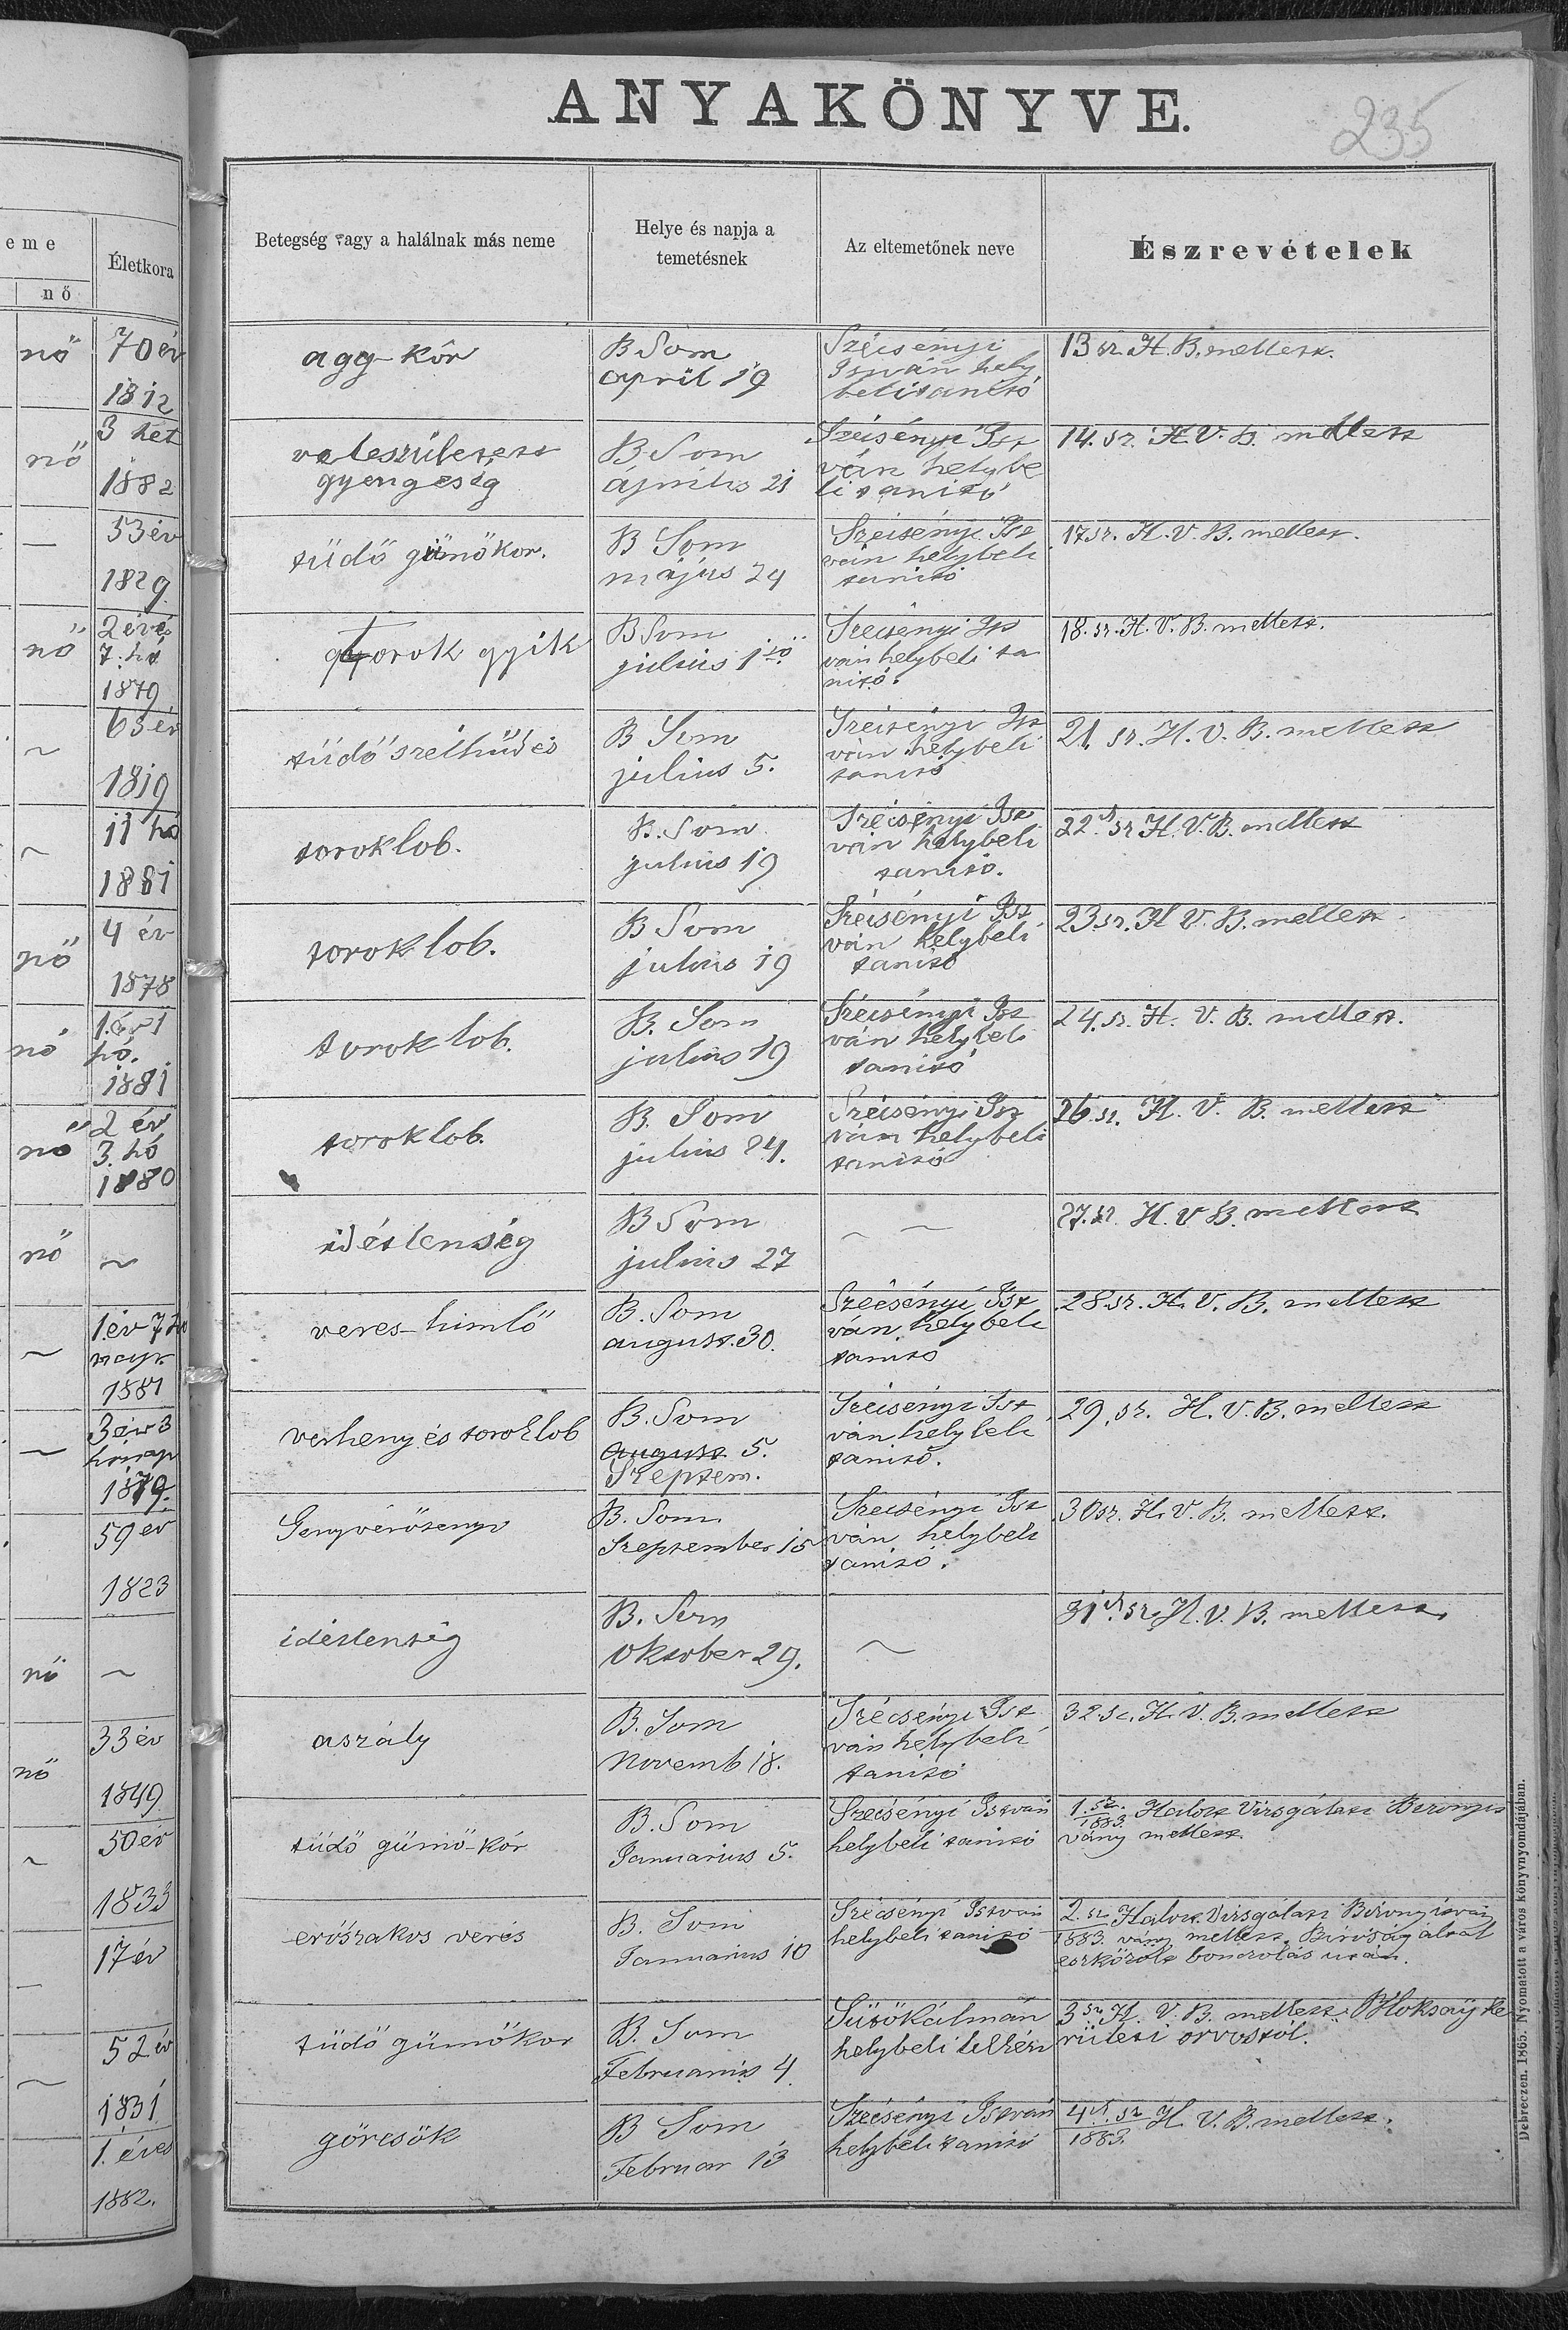 ANYAKÖNYVE.
235
eme
nő
Életkora
Betegség vagy a halálnak más neme
Helye és napja a
temetésnek
Az eltemetőnek neve
Észrevételek
nő
70 év
1812
agg-kór
B Som
april 19
Szécsényi
István hely
beli tanitó
13 sz. H. B. mellett.
nő
3 hét
1882
veleszületett
gyengeség
B Som
április 21
Szécsényi Ist
ván helybe
li tanitó
14. sz. H. V. B. mellett
—
53 év
1829
tüdő gümőkor.
B Som
május 24
Szécsényi Ist
ván helybeli
tanitó
17 sz. H. V. B. mellett.
nő
2 év és
7. hó
1879
torok gyik
B Som
julius 1ső
Szécsényi Ist
ván helybeli ta
nitó.
18. sz. H. V. B. mellett.
~
63 év
1819
tüdő szélhűdés
B Som
julius 5.
Szécsényi Ist
ván helybeli
tanitó
21. sz. H. V. B. mellett
~
11 hó
1881
toroklob.
B. Som
julius 19
Szécsényi Ist
ván helybeli
tanitó.
22. sz H. V. B. mellett
nő
4 év
1878
torok lob.
B Som
julius 19
Szécsényi Ist
ván helybeli
tanitó
23 sz. H V. B. mellett
nő
1. év 1
hó.
1881
torok lob.
B. Som
julius 19
Szécsényi Ist
ván helybeli
tanitó
24. sz. H. V. B. mellett.
nő
2 év
3. hó
1880
toroklob.
B. Som
julius 24.
Szécsényi Ist
ván helybeli
tanitó
26 sz. H. V. B. mellett
nő
~
idétlenség
B Som
julius 27
~
27. sz. H. V B. mellett
~
1. év 7 hó
napr.
1881
veres-himlő
B. Som
august. 30.
Szécsényi Ist
ván helybeli
tanitó
28 sz. H. V. B. mellett
~
3 év 3
hónap
1879.
verheny és toroklob
B. Som
august 5.
Szeptem.
Szécsényi Ist
ván helybeli
tanitó.
29. sz. H. V. B. mellett
59 év
1823
Genyvérősenyv
B. Som
Szeptember 15
Szécsényi Ist
ván helybeli
tanitó.
30 sz. H. V. B. mellett.
nő
~
idétlenség
B. Som
Oktober 29.
~
31. sz. H. V. B. mellett.
nő
33 év
1849
aszály
B. Som
Novemb 18.
Szécsényi Ist
ván helybeli
tanitó
32 sz. H. V. B. mellett
~
50 év
1833
tüdő gümő-kór
B. Som
Januarius 5.
Szécsényi István
helybeli tanitó
1. sz. Halott Vizsgálati Bizonyit
1883. vány mellett.
—
17 év
erőszakos verés
B. Som
Januarius 10
Szécsényi István
helybeli tanitó
2. sz. Halott. Vizsgálati Bizonyit
1883. vány mellett. Biróság által
eszközölt bonczolás után.
~
52 év
1831
tüdő gümőkor
B. Som
Februarius 4.
Sütő Kálmán
helybeli lelkész
3 sz. H. V. B. mellett. Ke
rületi orvostól.
1. éves
1882.
görcsök
B Som
Februar 13
Szécsényi István
helybeli tanitó
4. sz H. V. B. mellett.
1883.
Debreczen. 1865. Nyomatott a város könyvnyomdájában.